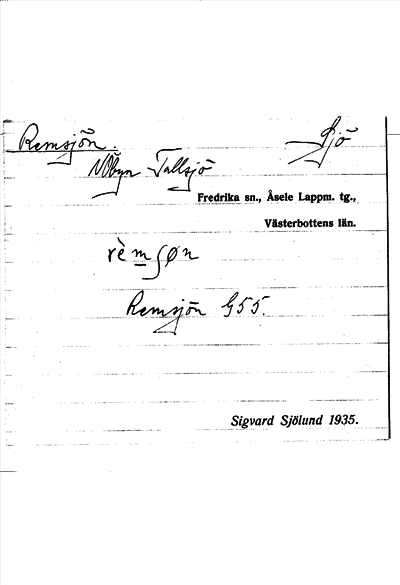 Remsjön. Sjö
Nybyn Tallsjö
Fredrika sn., Åsele Lappm. tg.,
Västerbottens län.
rèmʃøn
Remsjön G55.
Sigvard Sjölund 1935.